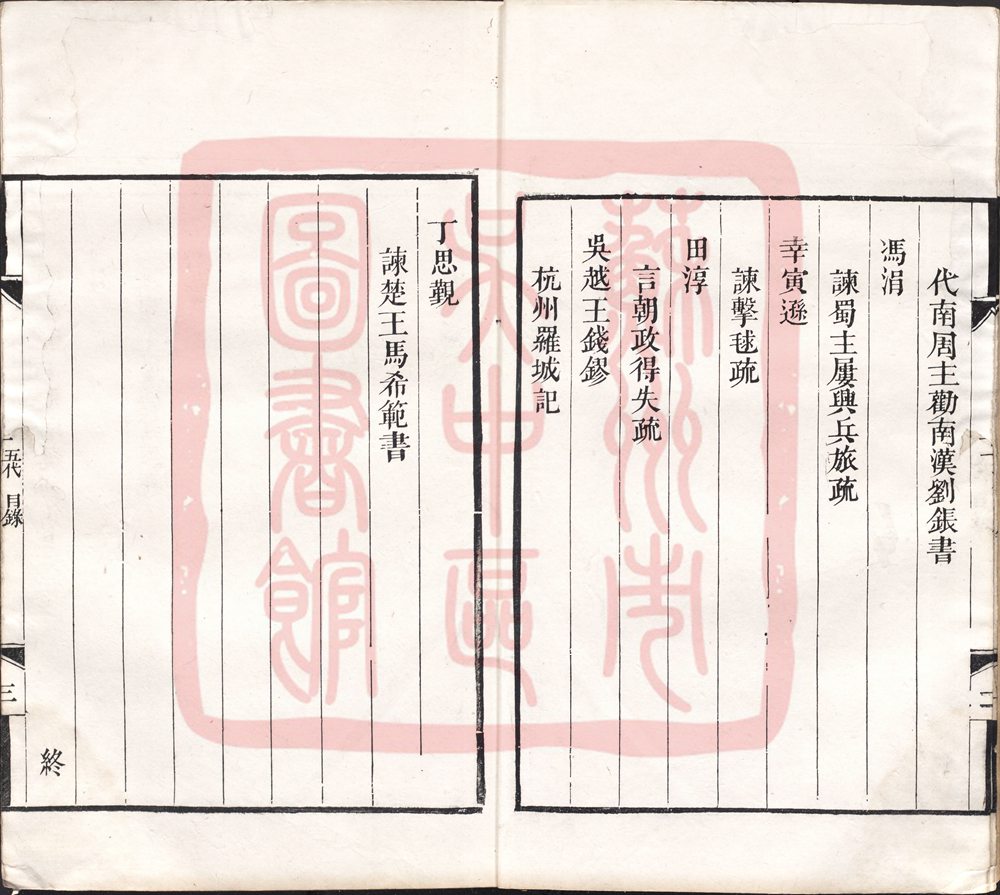 代南周主勸南漢劉鋹書
馮涓
諫蜀主屢興兵旅疏
幸寅遜
諫擊毬疏
田淳
言朝政得失疏
吳越王錢鏐
杭州羅城記
二
丁思覲
諫楚王馬希範書
終
五代 目錄
三
蘇州市
吴中區
圖書館